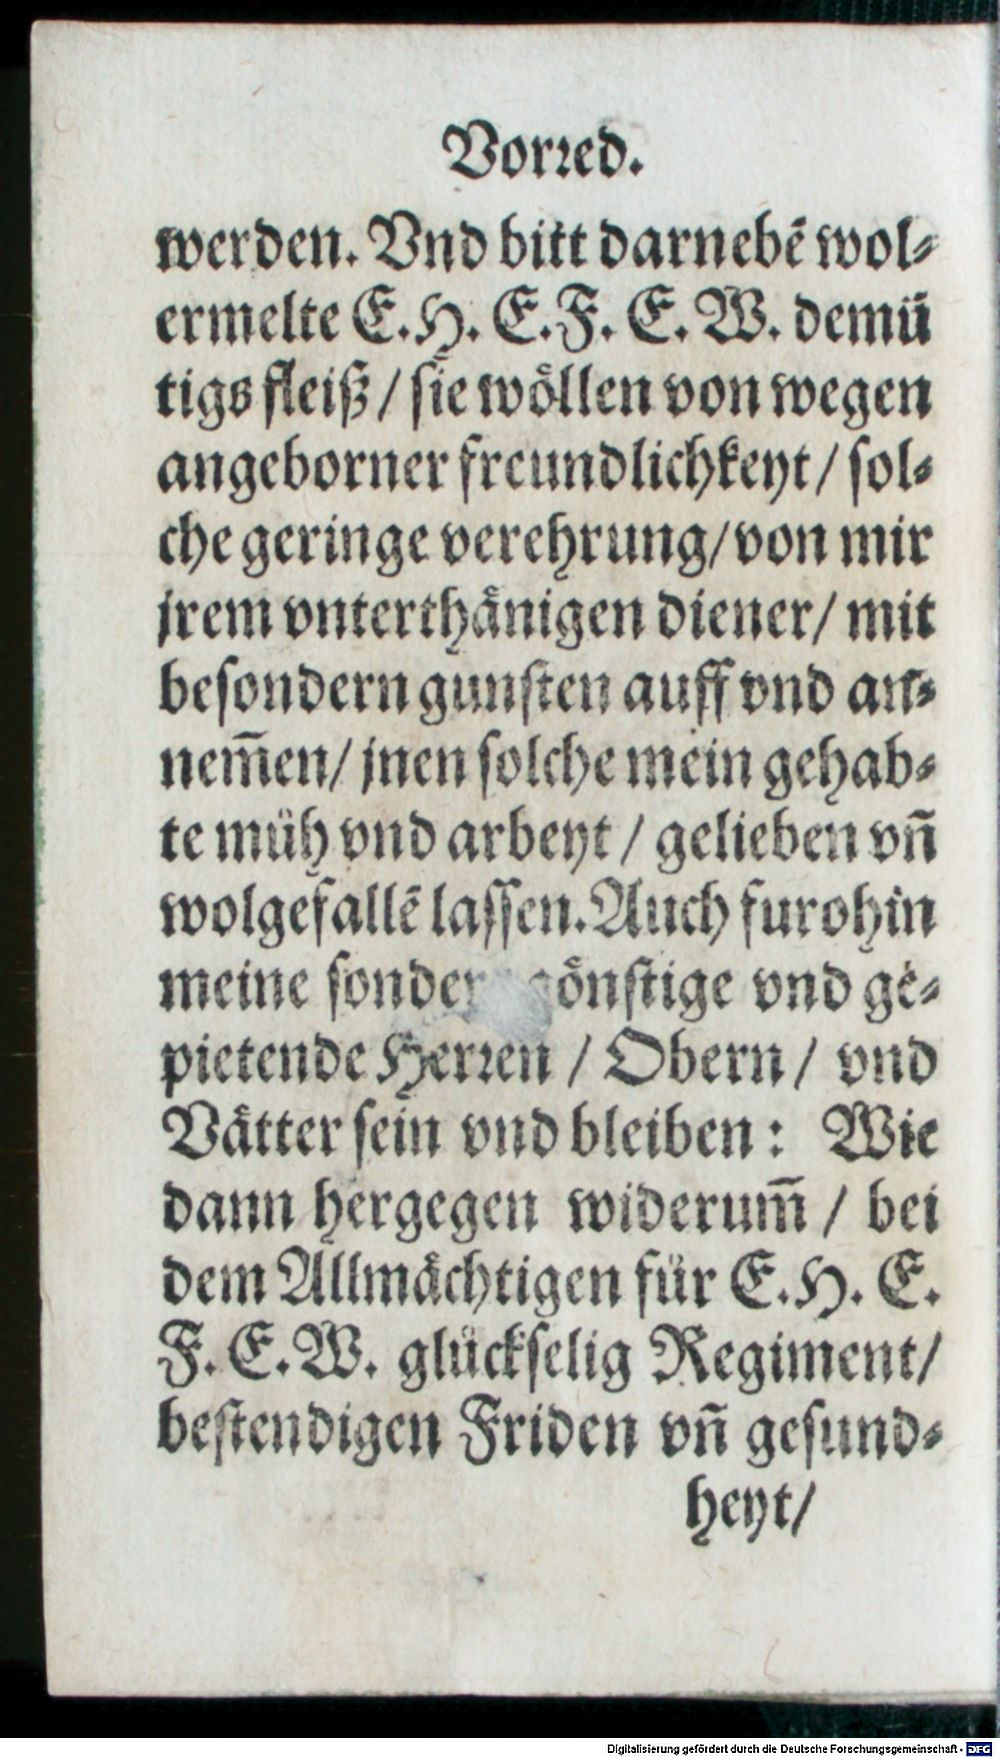 Vorꝛed.
werden. Vnd bitt darnebẽ wol⸗
ermelte E.H. E.F. E.W. demü
tigs fleiß / sie wöllen von wegen
angeborner freundlichkeyt / sol⸗
che geringe verehrung / von mir
jrem vnterthänigen diener / mit
besondern gunsten auff vnd an⸗
nem̃en / jnen solche mein gehab⸗
te müh vnd arbeyt / gelieben vñ
wolgefallẽ lassen. Auch furohin
meine vnd ge⸗
pietende Herꝛen / Obern / vnd
Vätter sein vnd bleiben : Wie
dann hergegen widerum̃ / bei
dem Allmächtigen für E.H. E.
F. E.W. glückselig Regiment /
bestendigen Friden vñ gesund⸗
heyt /
Digitalisierung gefördert durch die Deutsche Forschungsgemeinschaft - DFG